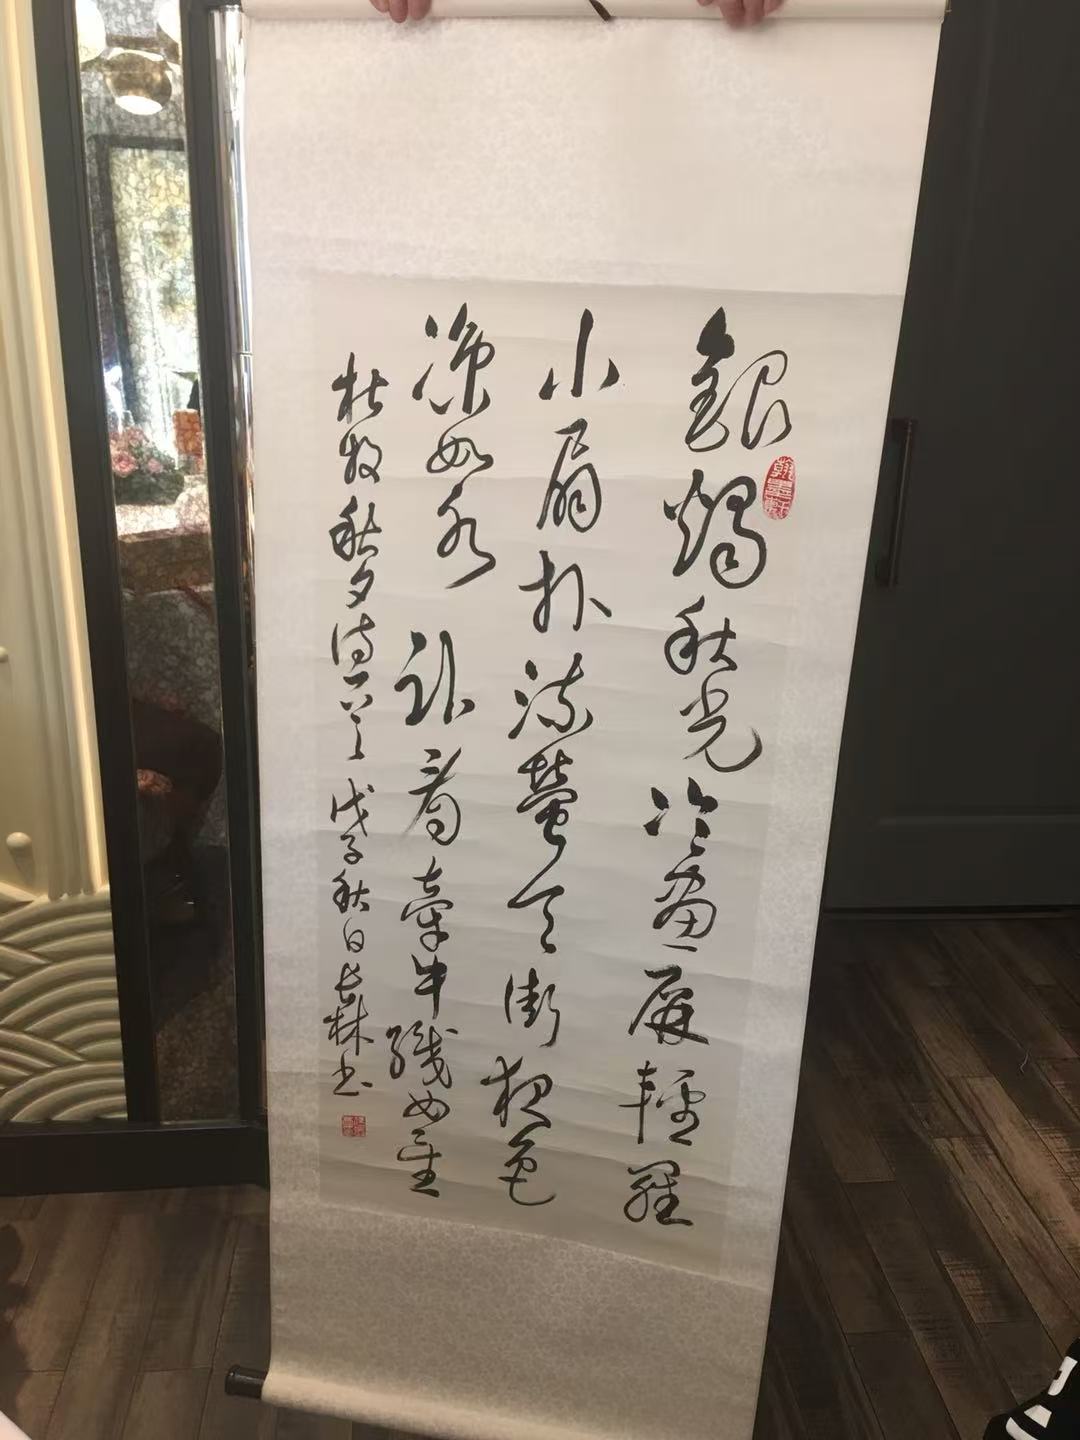 銀燭秋光冷畫屏輕羅
小扇扑流螢天街夜色
凉如水卧看牽牛織女星
杜牧秋夕诗一首戊子秋日长林书